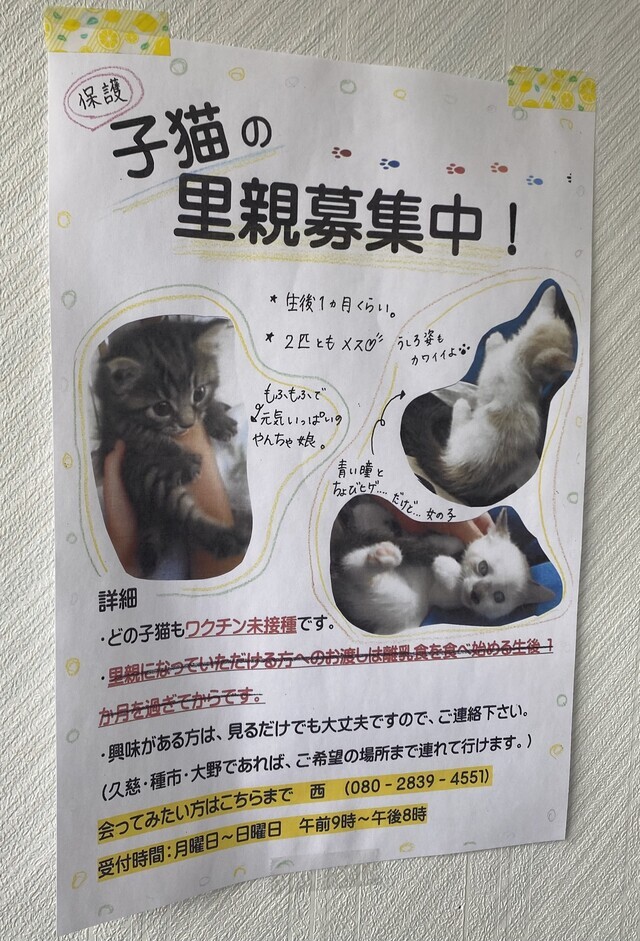 保護
子猫の
里親募集中！
* 生後1ヵ月くらい。
* 2匹ともメス♡
うしろ姿も
カワイイよ
もふもふで
元気いっぱいの
やんちゃ娘。
青い瞳と
ちょびヒゲ....だけど...女の子
詳細
・どの子猫もワクチン未接種です。
・里親になっていただける方へのお渡しは離乳食を食べ始める生後1
か月を過ぎてからです。
・興味がある方は、見るだけでも大丈夫ですので、ご連絡下さい。
(久慈・種市・大野であれば、ご希望の場所まで連れて行けます。)
会ってみたい方はこちらまで 西 (080-2839-4551)
受付時間：月曜日～日曜日 午前9時～午後8時